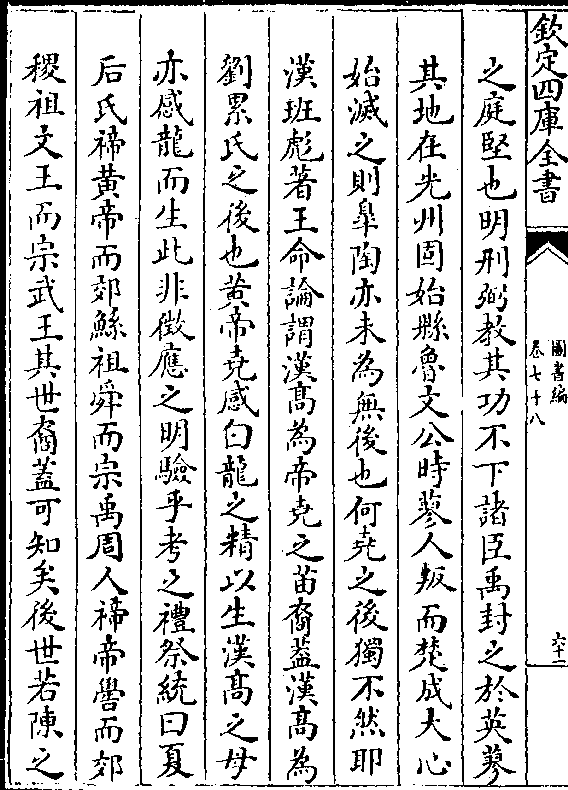 欽定四庫全書
圖書編
卷七十八
六十二
之庭堅也明刑弼教其功不下諸臣禹封之於英蓼
其地在光州固始縣魯文公時蓼人叛而楚成大心
始滅之則臯陶亦未為無後也何堯之後獨不然耶
漢班彪著王命論謂漢髙為帝堯之苗裔蓋漢髙為
劉累氏之後也黄帝堯感白龍之精以生漢髙之母
亦感龍而生此非徴應之明驗乎考之禮祭統曰夏
后氏禘黄帝而郊鯀祖舜而宗禹周人禘帝嚳而郊
稷祖文王而宗武王其世裔蓋可知矣後世若陳之